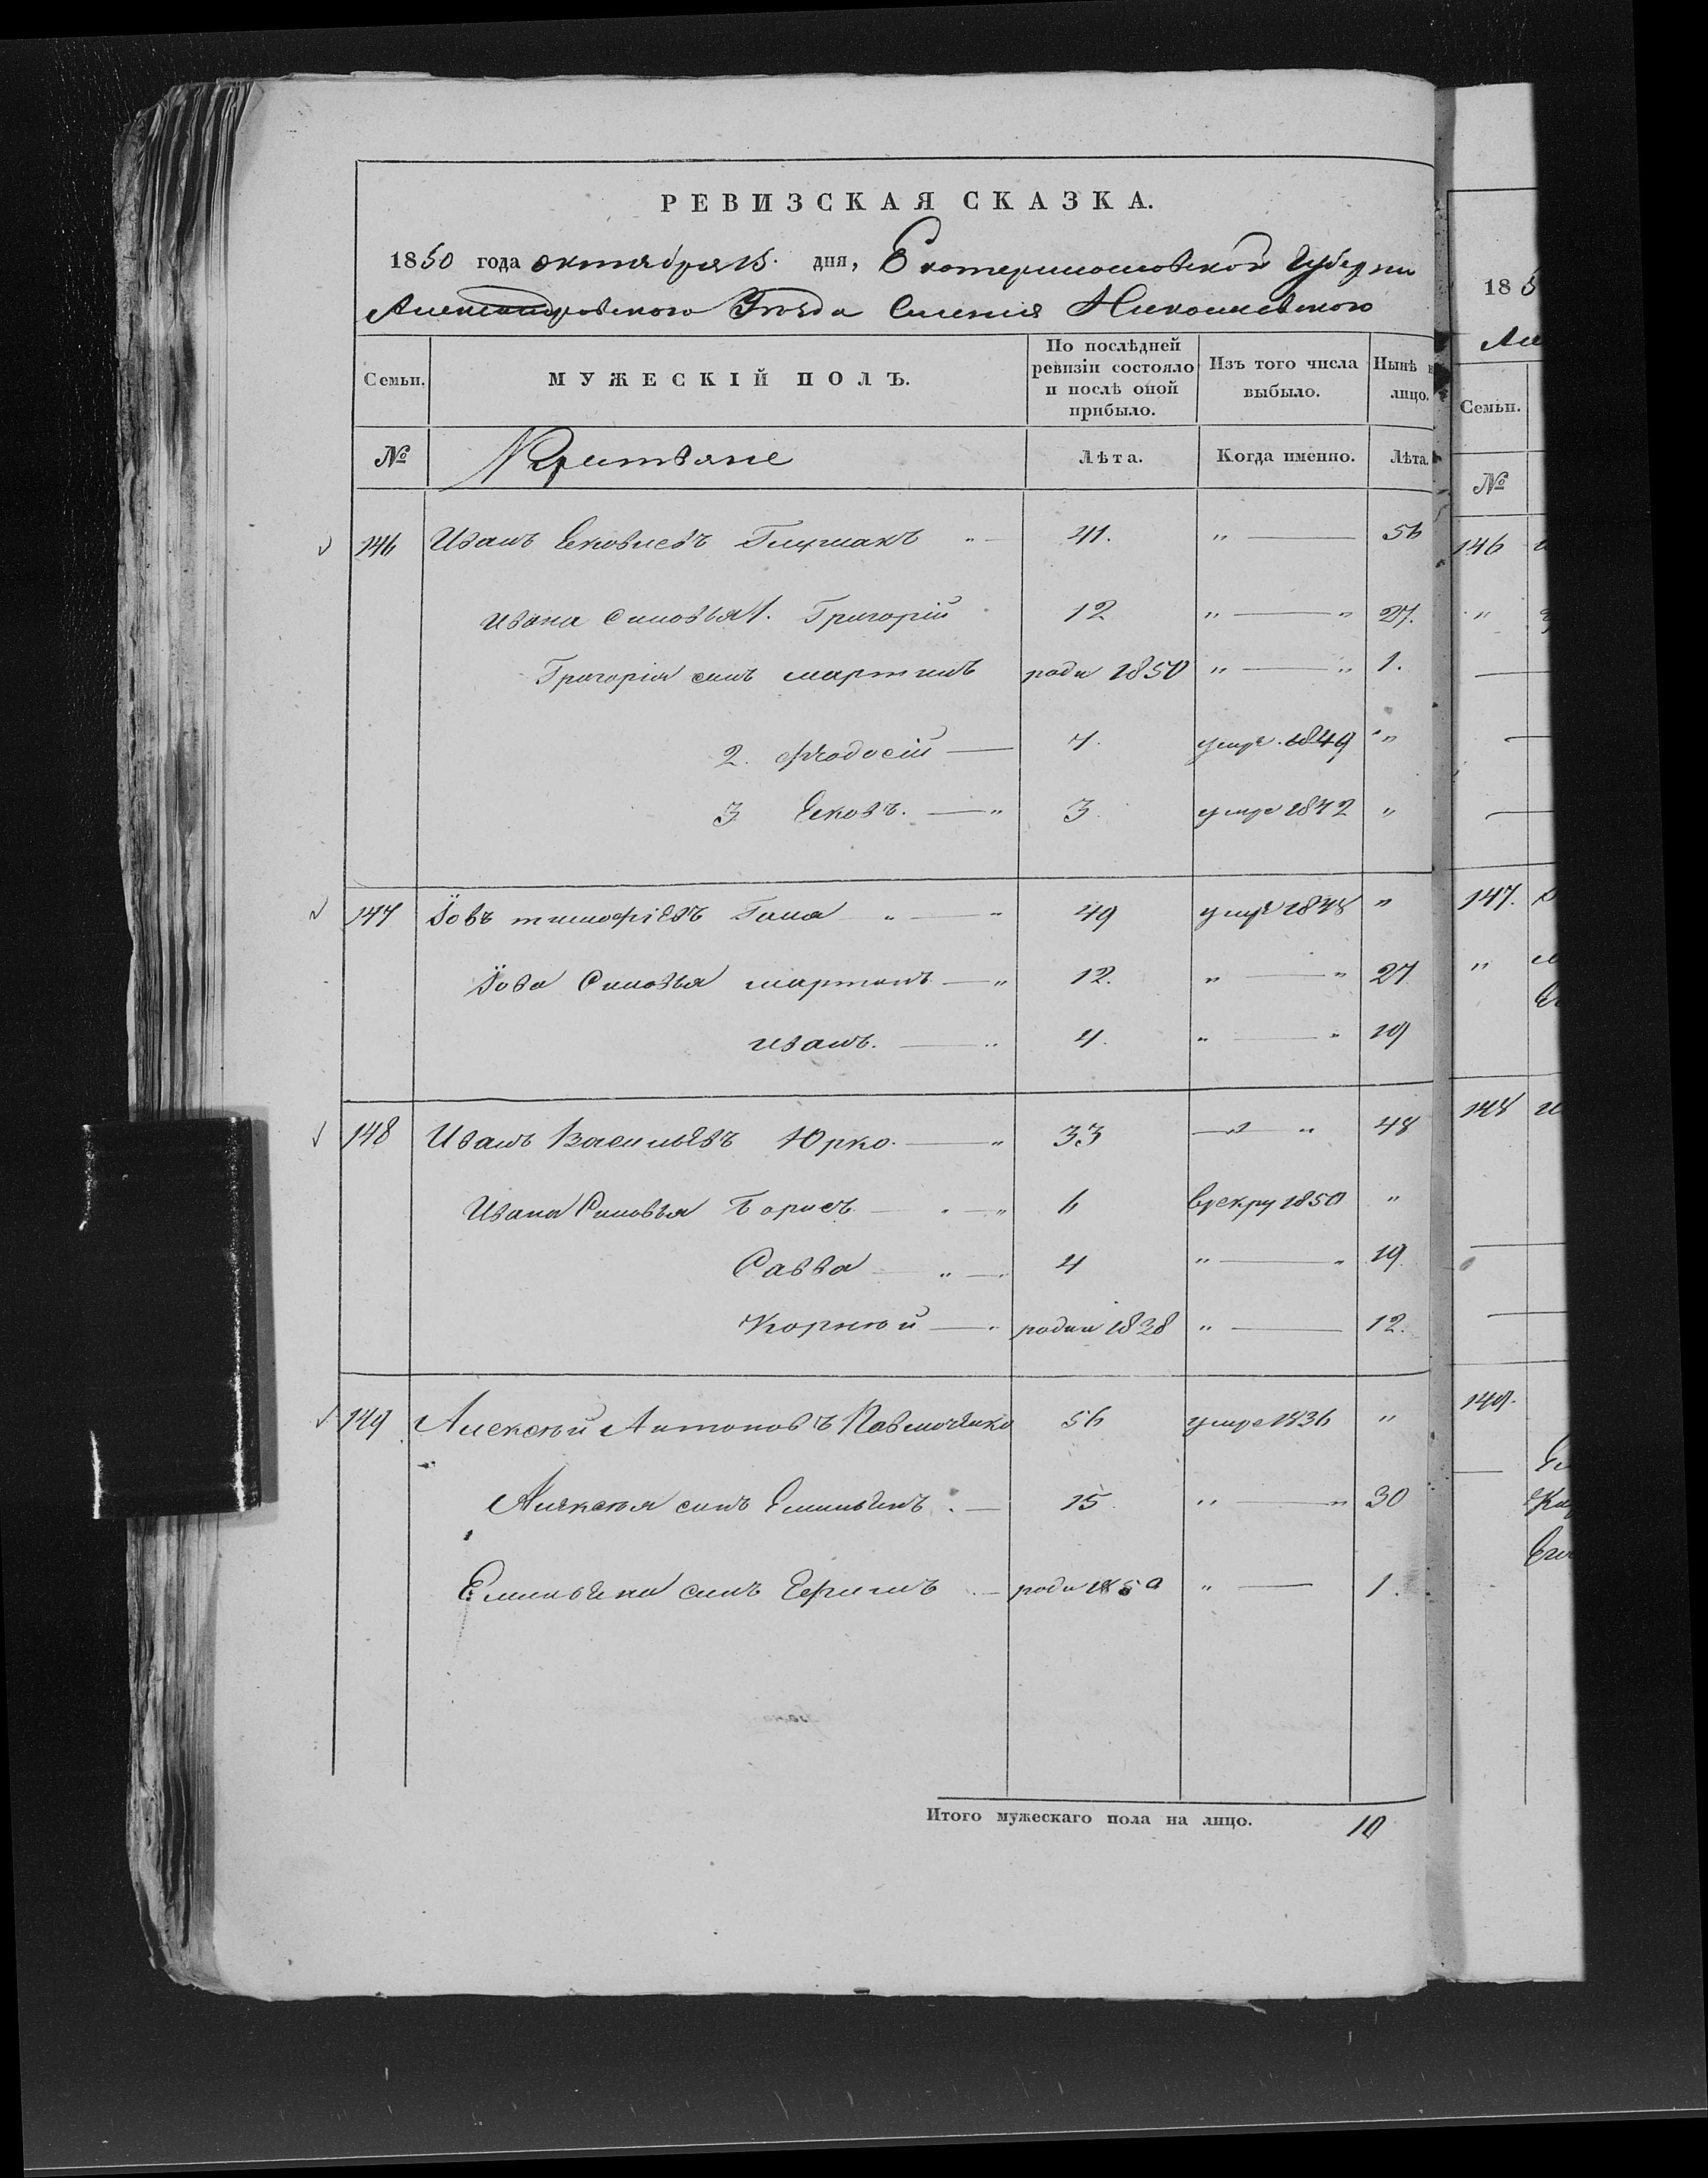 РЕВИЗСКАЯ СКАЗКА.
1850 года октября 15. дня, Екатеринославской Губернии
Александровского Уезда Селения Николаевского
Семьи. МУЖЕСКІЙ ПОЛЪ. По послѣдней ревизіи состояло и послѣ оной прибыло. Изъ того числа выбыло. Нынѣ н лицо.
№ Крестьяне Лѣта. Когда именно. Лѣта.
146 Иванъ Яковлевъ 41. " — 56
Ивана Сыновья 1. Григорій 12 " — " 27.
Григорія сынъ мартинъ роди 1850 " — " 1.
2. Феодосій — 7. умре. 1849 "
3 Яковъ. — " 3. умре 1842 "
147 Іовъ тимофіевъ Гама " — " 49 умре 1848 "
Іова Сыновья мартинъ — " 12. " — " 27
иванъ. — " 4. " — " 19
148 Иванъ Васильевъ Юрко. — " 33 — " 48
Ивана Сыновья Борисъ — " — " 6 врекру 1850 "
Савва — " — 4 " — " 19.
Корнѣй — " родил 1838 " — 12.
149 Алексѣй Антоновъ Павлюченко 56 умре 1836 "
Алексѣя сынъ Емильянъ. — 15. " — " 30
Емильяна сынъ Ефимъ — роди 1850 " — 1.
Итого мужескаго пола на лицо. 10
185
Але
Семьи.
№
146
147.
148
149.